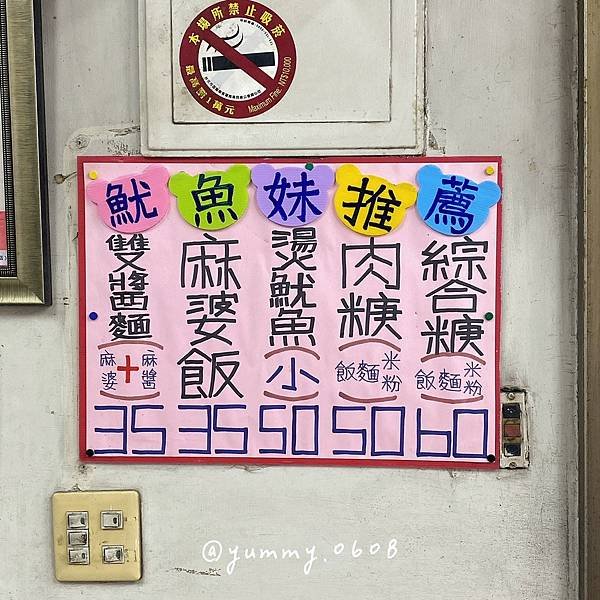 本場所禁止吸菸
最高罰1萬元
Maximum Fine, NT$10,000
魷魚妹推薦
雙醬麵
麻婆+麻醬
35
麻婆飯
35
燙魷魚
小
50
肉糖
飯麵米粉
50
綜合糖
飯麵米粉
60
@yummy.0608